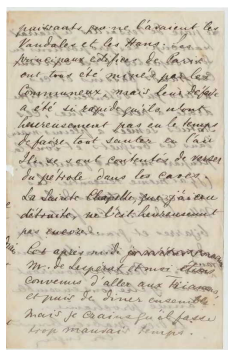 puissants que ne l'avaient les
Vandales et les Huns. Les
principaux édifices de Paris
ont tous été minés par les
Communeux mais leur défaite
a été si rapide qu'ils n'ont
heureusement pas eu le temps
de faire tout sauter en l'air
Ils se sont contentés de verser
du pétrole dans les caves.
La Sainte Chapelle, que j'ai cru
détruite, ne l'est heureusement
pas encore.
Cet après midi
M. de et moi
convenus d'aller aux
et puis de diner ensemble
mais je crains qu'il fasse
trop mauvais temps.